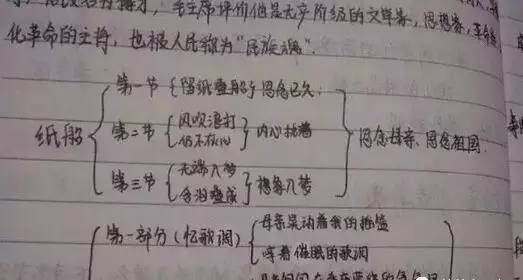 毛主席评价他是无产阶级的文学家、思想家、革命
化革命的主将，也被人民称为“民族魂”.
纸船
第一节 {留纸叠船} 思念已久
第二节 {风吹浪打
仍不灰心} 内心执着
第三节 {无端入梦
含泪叠成} 想象入梦
思念母亲、思念祖国.
第一部分(忆歌调) {母亲晃动着我的摇篮
哼着催眠的歌调